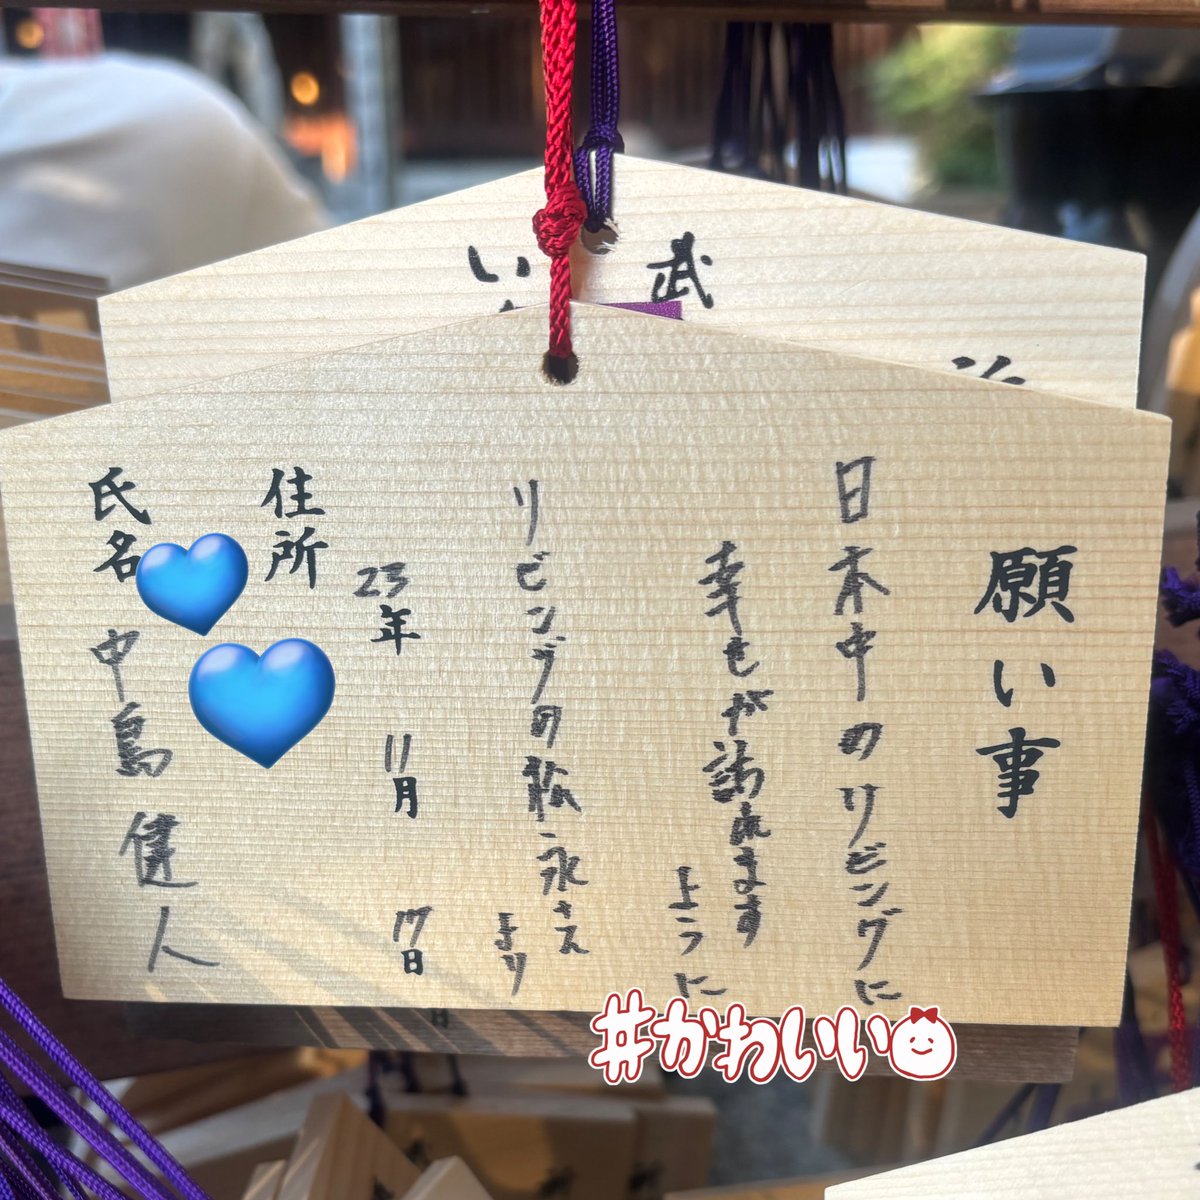 武
い
願い事
日本中のリビングに
幸せが訪れます
ように
リビングの松永さん
より
23年 11月 17日
住所
氏名 中島健人
#かわいい